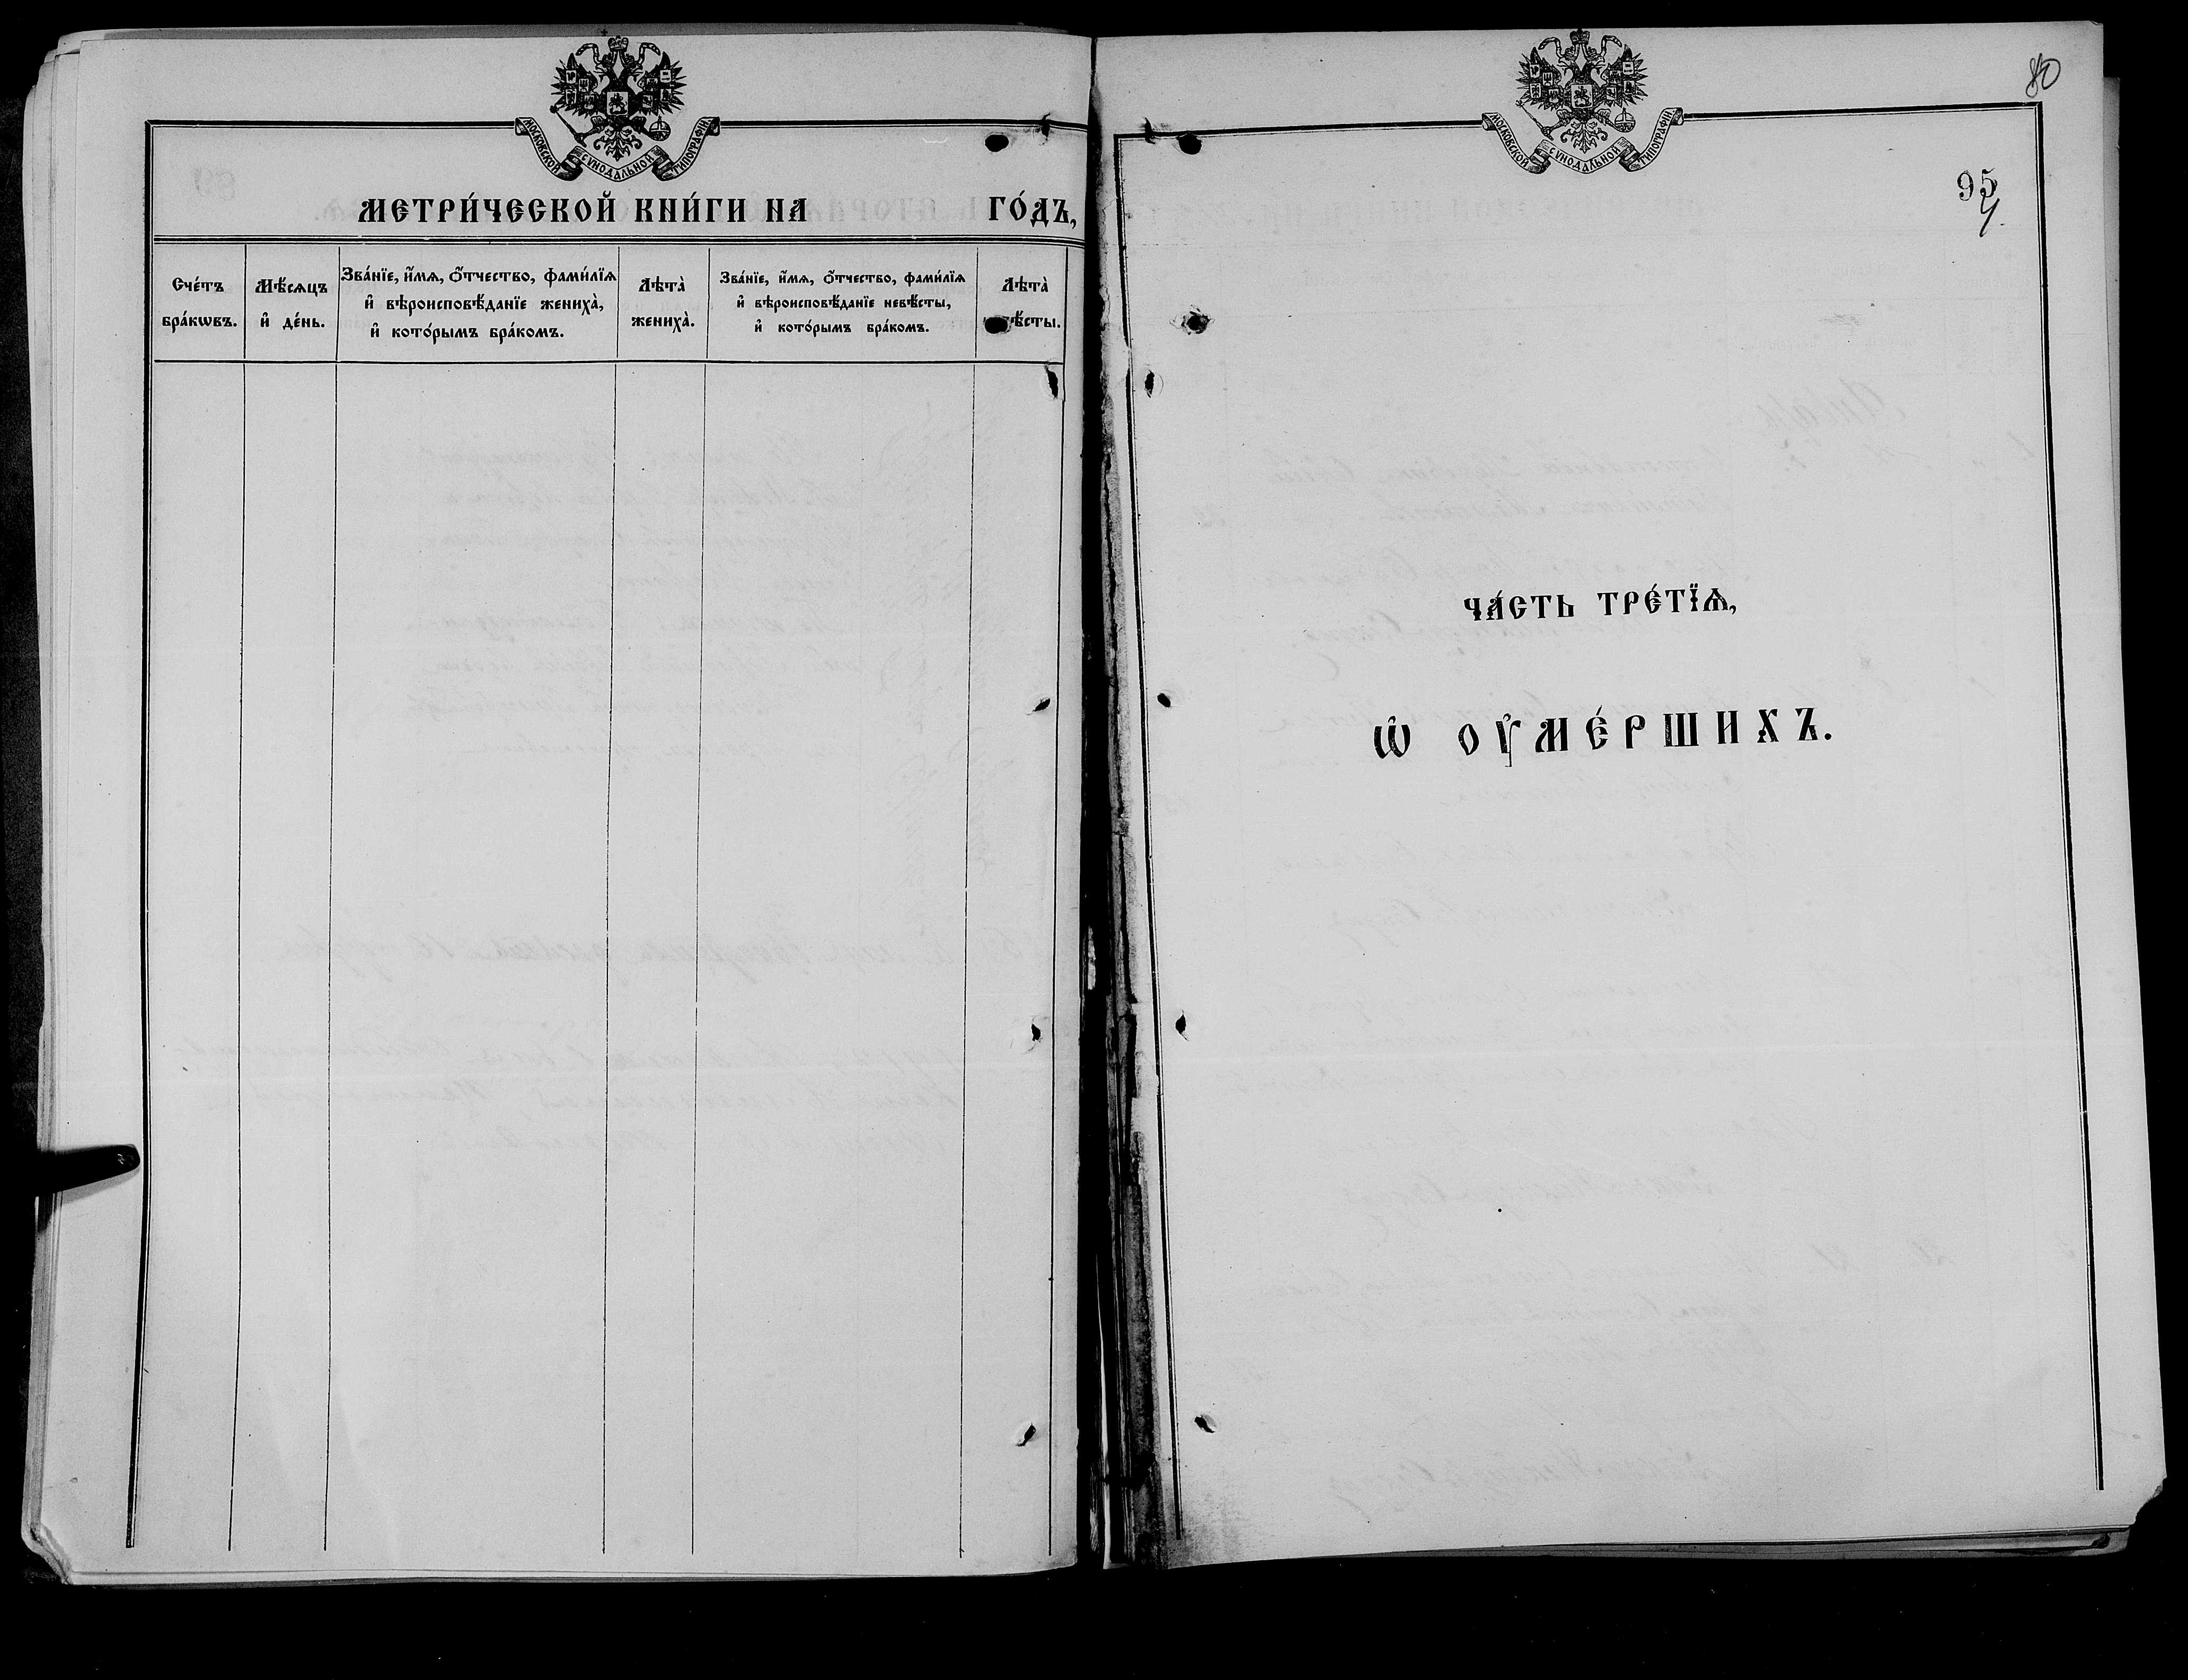 МОСКОВСКОЙ СѴНОДАЛЬНОЙ ТИПОГРАФІИ
МЕТРИ́ЧЕСКОЙ КНИ́ГИ НА ГО́ДЪ,
Сче́тъ
бра́кѡвъ.
Мѣ́сяцъ
и҆ де́нь.
Зва́нїе, и҆́мѧ, ѻ҆́тчество, фами́лїѧ
и҆ вѣроисповѣ́данїе жениха̀,
и҆ кото́рымъ бра́комъ.
Лѣта̀
жениха̀.
Зва́нїе, и҆́мѧ, ѻ҆́тчество, фами́лїѧ
и҆ вѣроисповѣ́данїе невѣ́сты,
и҆ кото́рымъ бра́комъ.
Лѣта̀
ѣ́сты.
80
МОСКОВСКОЙ СѴНОДАЛЬНОЙ ТИПОГРАФІИ
95
ЧА́СТЬ ТРЕ́ТЇѦ,
Ѡ҆ ОУ҆МЕ́РШИХЪ.